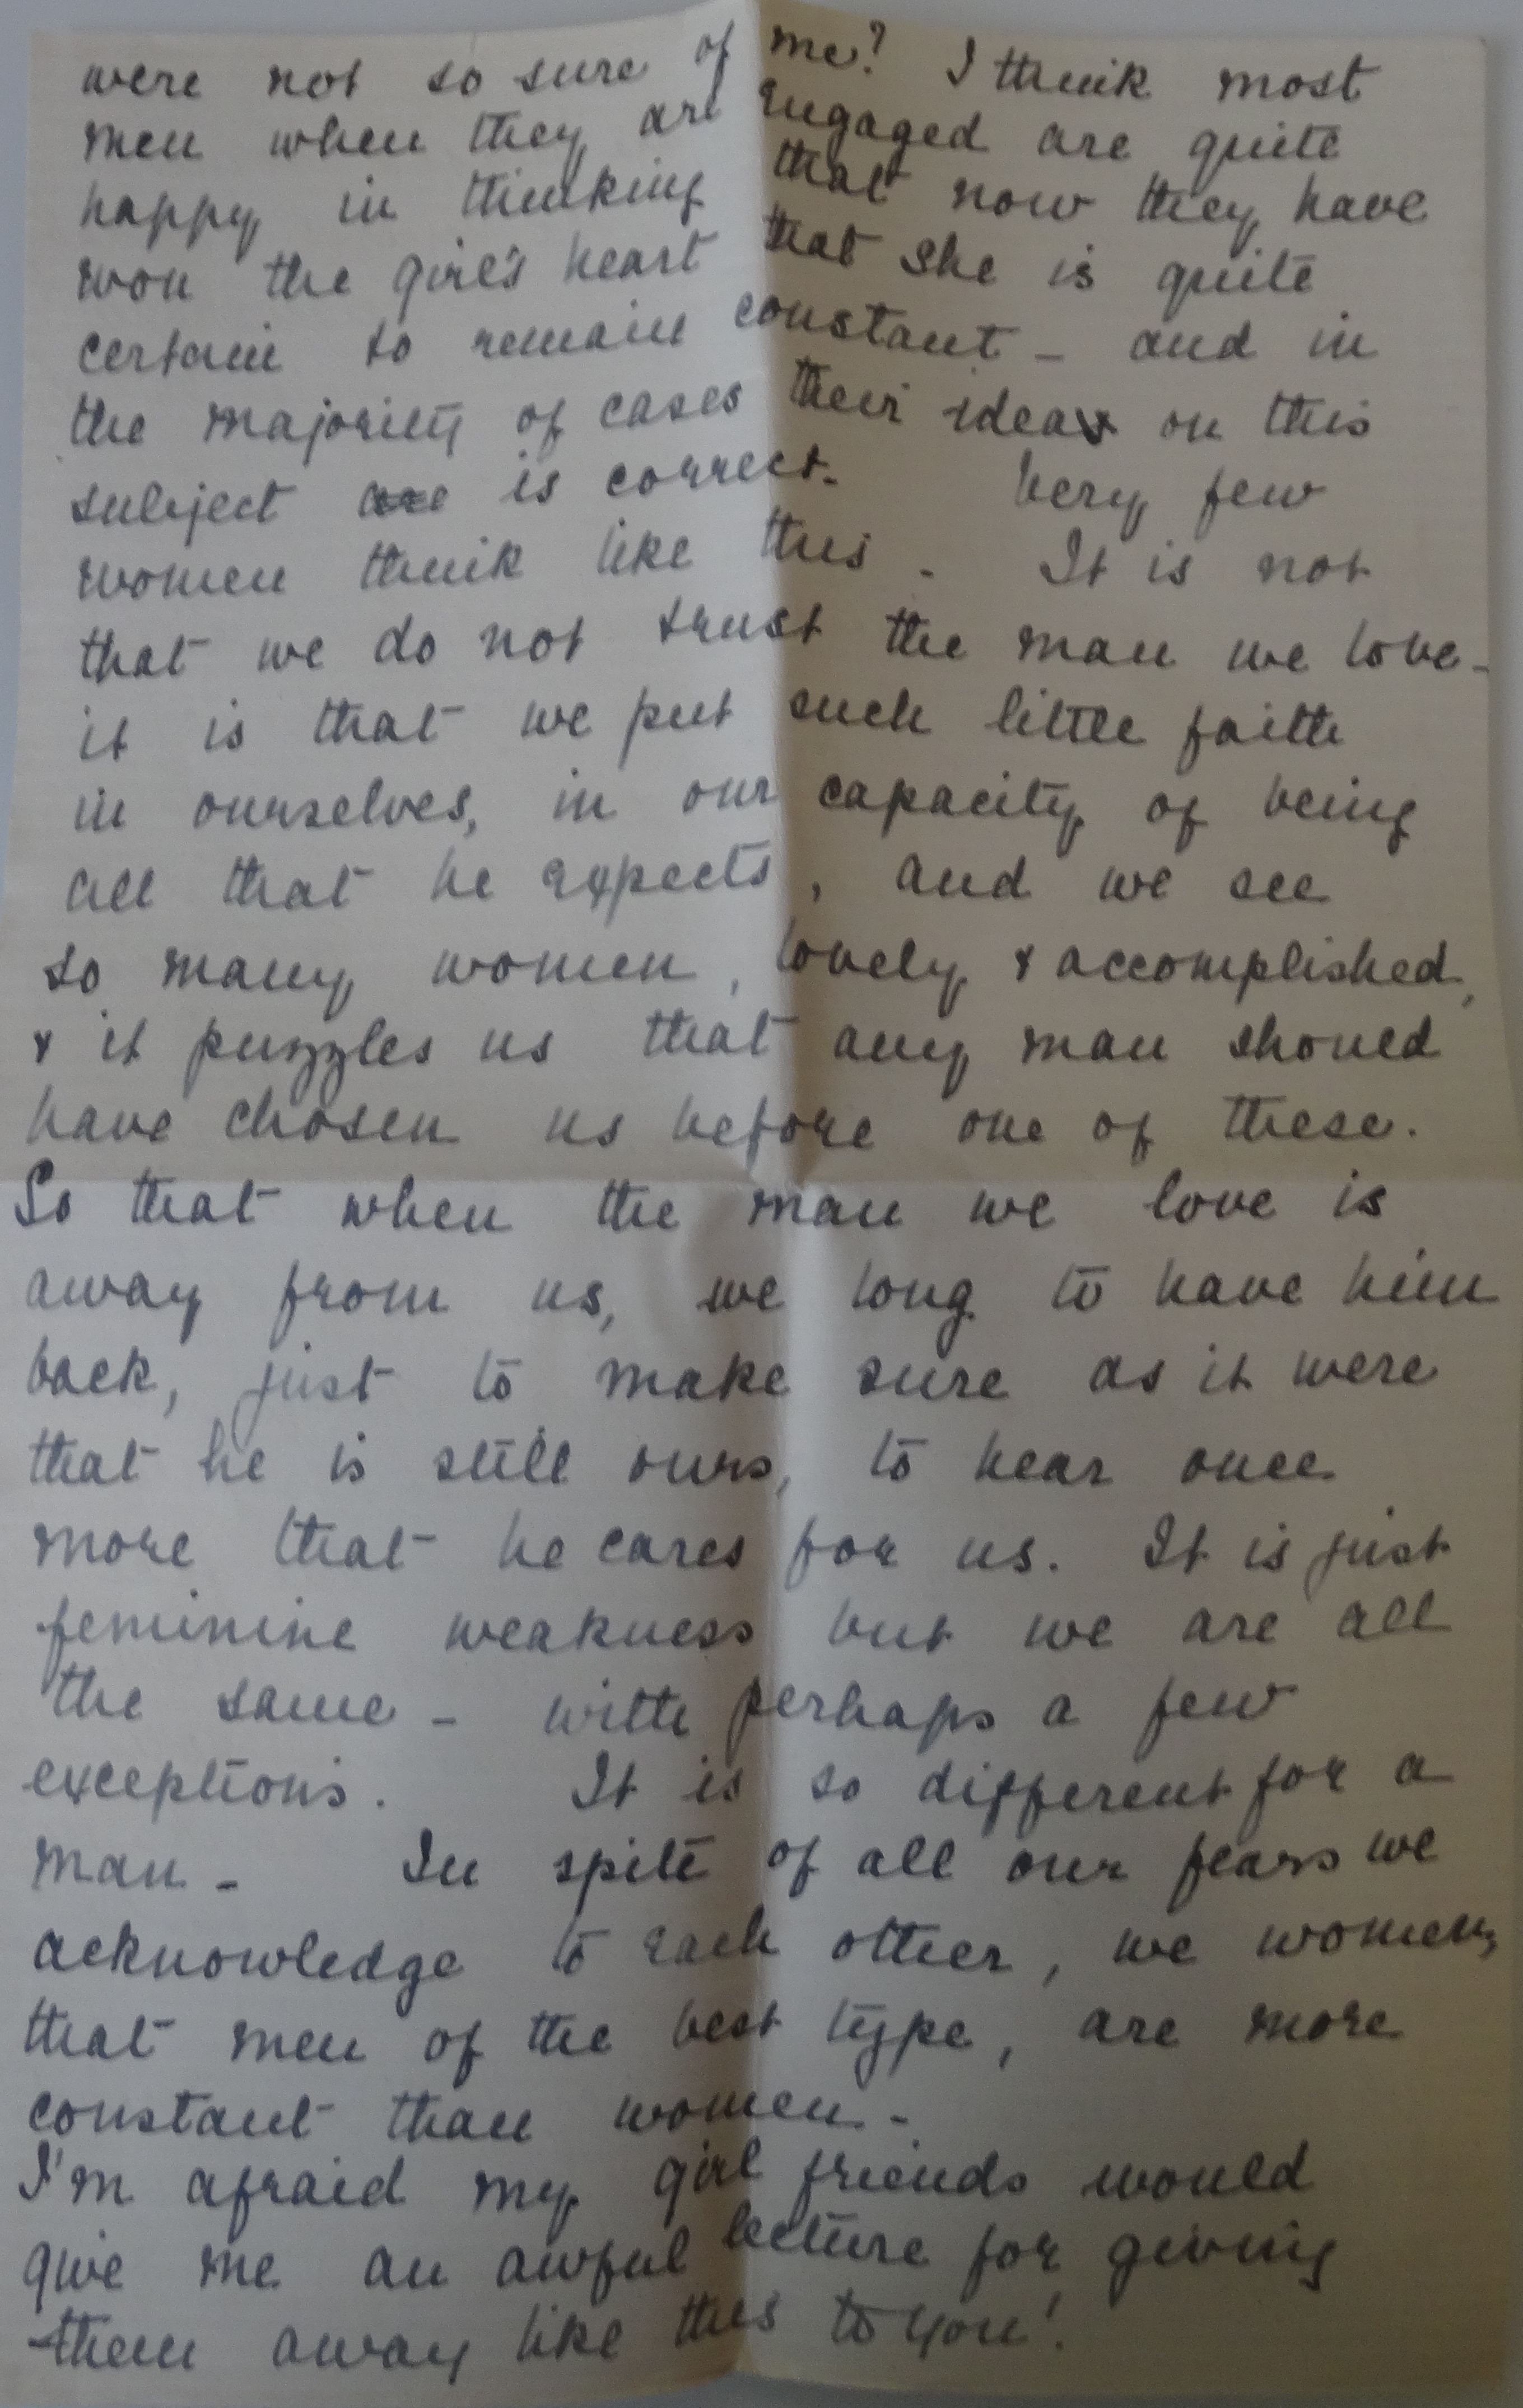 were not so sure of me? I think most
men when they are engaged are quite
happy in thinking that now they have
won the girl's heart that she is quite
certain to remain constant - and in
the majority of cases their idea on this
subject are is correct. Very few
women think like this. It is not
that we do not trust the man we love -
it is that we put such little faith
in ourselves, in our capacity of being
all that he expects, and we see
so many women, lovely & accomplished,
& it puzzles us that any man should
have chosen us before one of these.
So that when the man we love is
away from us, we long to have him
back, just to make sure as it were
that he is still ours, to hear once
more that he cares for us. It is just
feminine weakness but we are all
the same - with perhaps a few
exceptions. It is so different for a
man - In spite of all our fears we
acknowledge to each other, we women,
that men of the best type, are more
constant than women -
I'm afraid my girl friends would
give me an awful lecture for giving
them away like this to you!